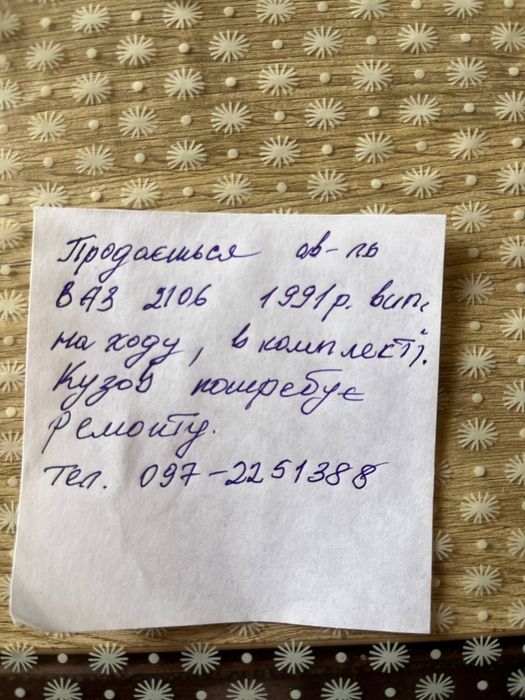 Продається ав-ль
ВАЗ 2106 1991р. вип.
на ходу, в комплекті.
Кузов потребує
ремонту.
Тел. 097-2251388